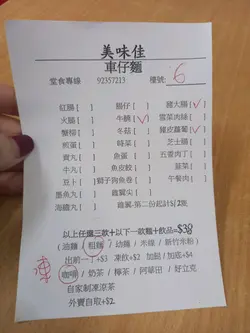 美味佳
車仔麵
堂食專線 92357213 檯號: 6
紅腸[ ] 腸仔[ ] 豬大腸[✓]
火腿[ ] 牛腩[✓] 雪菜肉絲[ ]
蟹柳[ ] 冬菇[ ] 豬皮蘿蔔[✓]
煎蛋[ ] 時菜[ ] 芝士腸[ ]
貢丸[ ] 魚蛋[ ] 五香肉丁[ ]
牛丸[ ] 魚皮餃[ ] 韮菜[ ]
豆卜[ ] 獅子狗魚卷[ ] 午餐肉[ ]
墨魚丸[ ] 雞翼尖[ ]
海鐵丸[ ] 雞翼-第二份起計$2隻
以上任選三款+以下一款麵+飲品=$38
(油麵 / 粗麵 / 幼麵 / 米線 / 新竹米粉)
出前一丁+$3 凍飲+$2 加餸/加底+$4
凍
咖啡 / 奶茶 / 檸茶 / 阿華田 / 好立克
自家制凍涼茶
外賣自取+$2